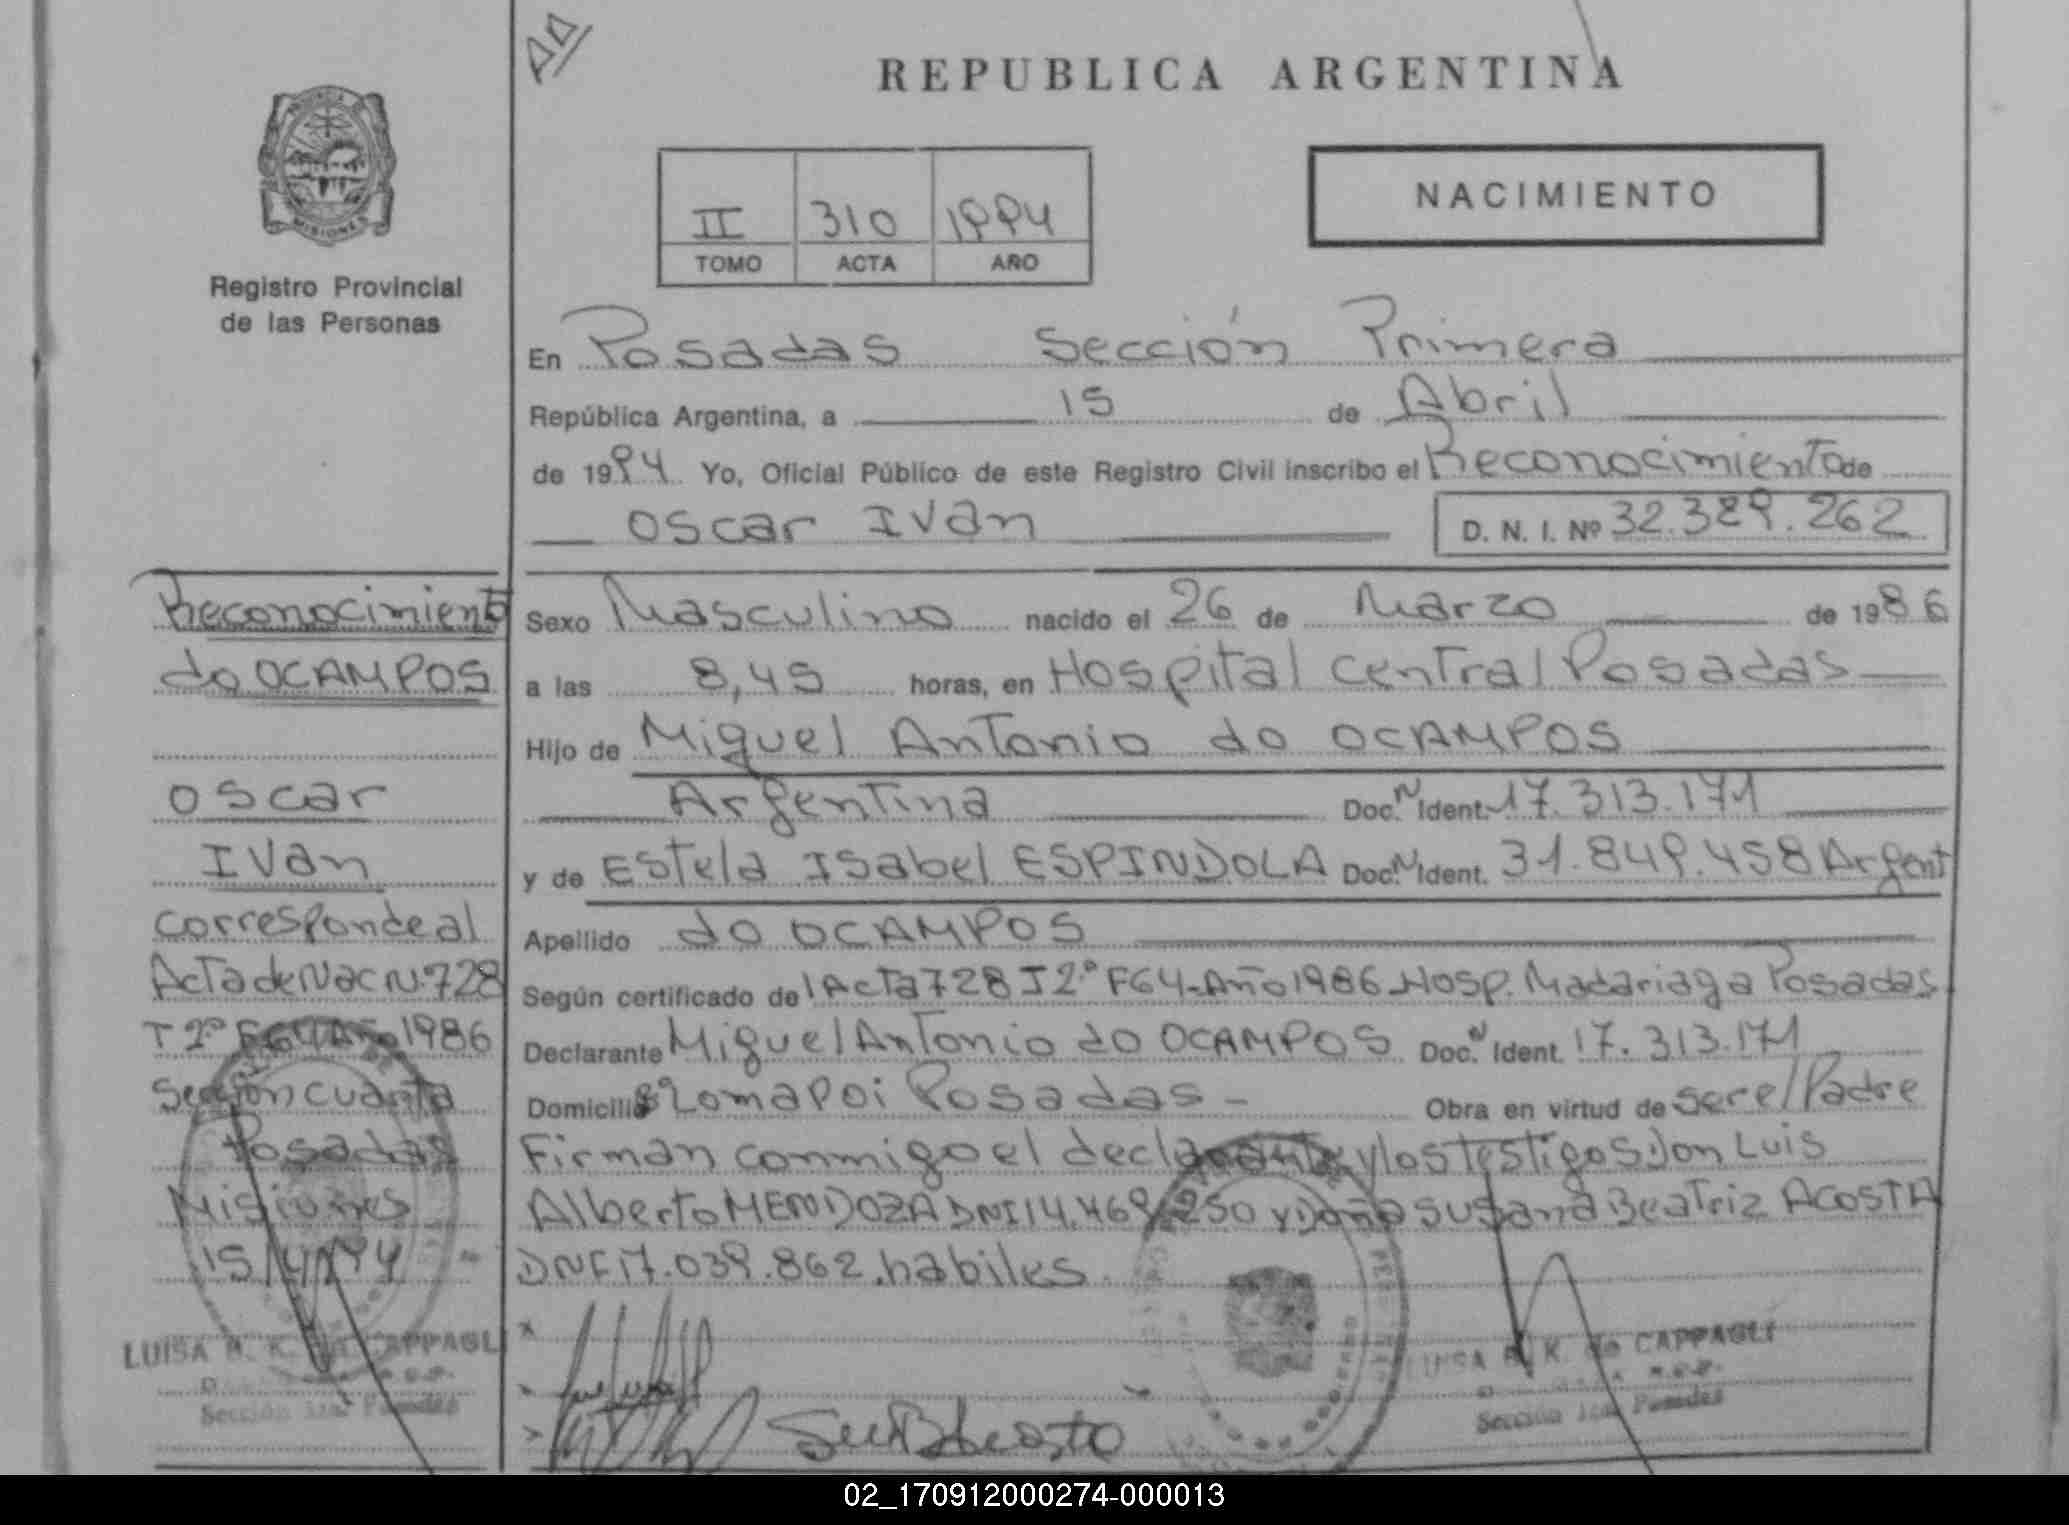 REPUBLICA ARGENTINA
NACIMIENTO
II 310 1994
TOMO ACTA AÑO
MISIONES
Registro Provincial
de las Personas
En Posadas Sección Primera
República Argentina, a 15 de Abril
de 1994 Yo, Oficial Público de este Registro Civil inscribo el Reconocimiento de
Oscar Ivan D. N. I. Nº 32.389.262
Sexo Masculino nacido el 26 de Marzo de 1986
a las 8,45 horas, en Hospital Central Posadas
Hijo de Miguel Antonio do OCAMPOS
Argentina Doc. N Ident. 17.313.171
y de Estela Isabel ESPINDOLA Doc. N Ident. 31.849.458 Argent
Apellido do OCAMPOS
Según certificado de Acta 728 T 2º F64-Año 1986-Hosp. Madariaga Posadas
Declarante Miguel Antonio do OCAMPOS Doc. N Ident. 17.313.171
Domicilio Lomapoi Posadas - Obra en virtud de ser el Padre
Firman conmigo el declarante y los testigos Don Luis
Alberto MENDOZA DNI 14.469.250 y Doña Susana Beatriz ACOSTA
DNI 17.039.862. habiles
Reconocimiento
do OCAMPOS
Oscar
Ivan
corresponde al
Acta de Nac N. 728
T 2º F64 Año 1986
Sección cuarta
Posadas
Misiones
15/4/94
LUISA B. K. de CAPPAGLI
Sección 1ra. Posadas
LUISA B. K. de CAPPAGLI
Sección 1ra. Posadas
02_170912000274-000013